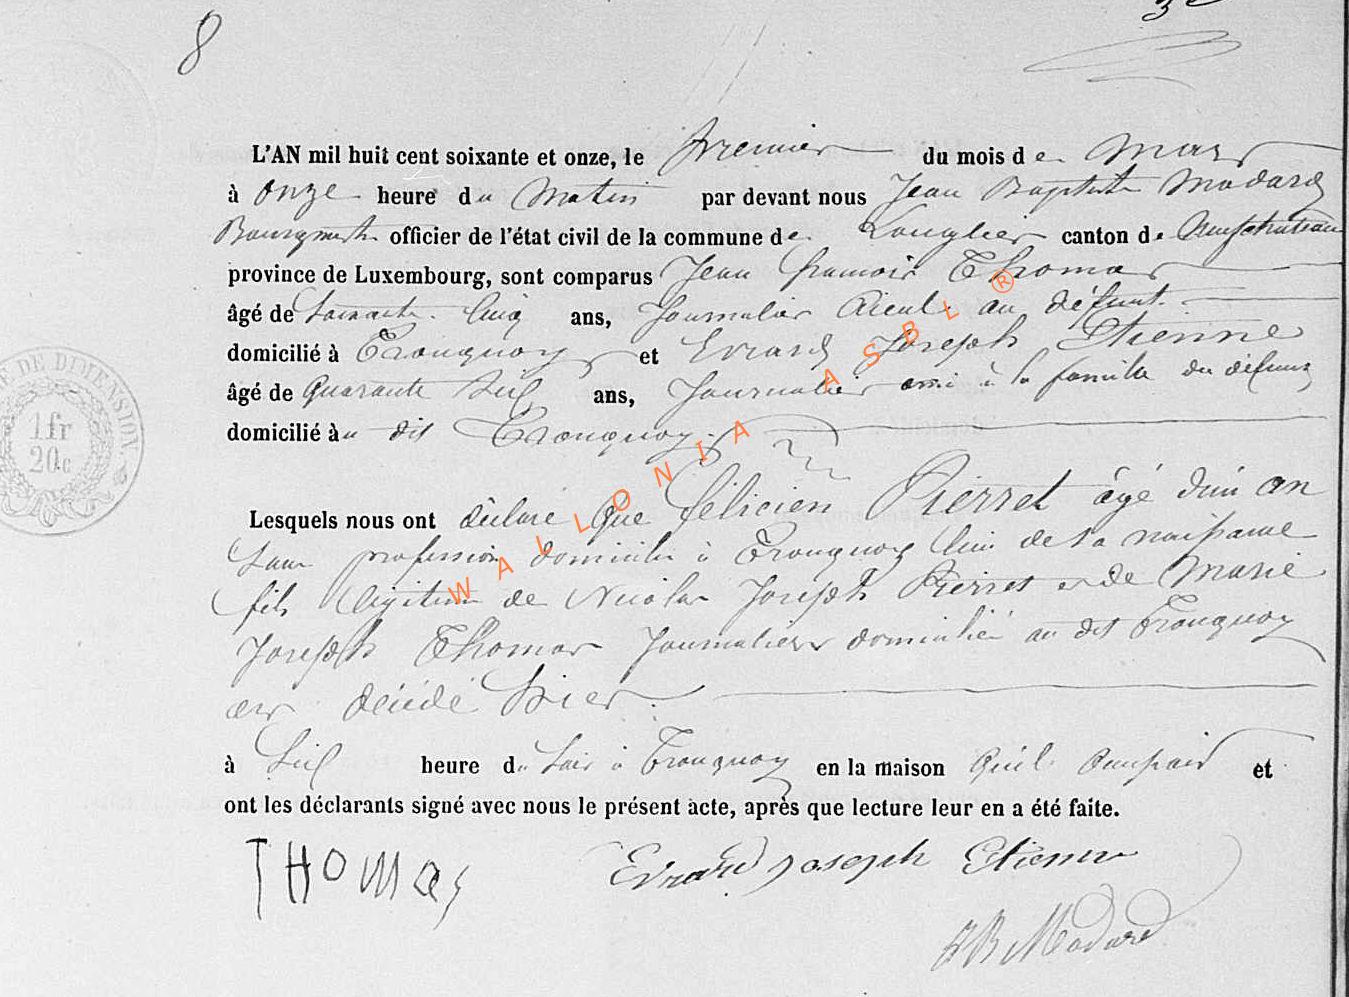 8
L'AN mil huit cent soixante et onze, le premier du mois de Mars
à onze heure du Matin par devant nous Jean Baptiste Modard
Bourgmestre officier de l'état civil de la commune de Longlier canton de Neufchateau
province de Luxembourg, sont comparus Jean francois Thomas
âgé de Soixante Cinq ans, Journalier Aieul au défunt
domicilié à Tronquoy et Evrard Joseph Etienne
âgé de Quarante Six ans, Journalier ami à la famille du défunt
domicilié au dit Tronquoy
Lesquels nous ont déclaré Que félicien Pierret âgé d'un an
Sans profession domicilié à Tronquoy lieu de sa naissance
fils légitime de Nicolas Joseph Pierret et de Marie
Joseph Thomas Journaliers domicilié au dit Tronquoy
est décédé hier
à Six heure du Soir à Tronquoy en la maison Qu'il Occupait et
ont les déclarants signé avec nous le présent acte, après que lecture leur en a été faite.
THOMAS Evrard Joseph Etienne
JB Modard
E DE DIMENSION
1fr
20c
WALLONIA ASBL ®